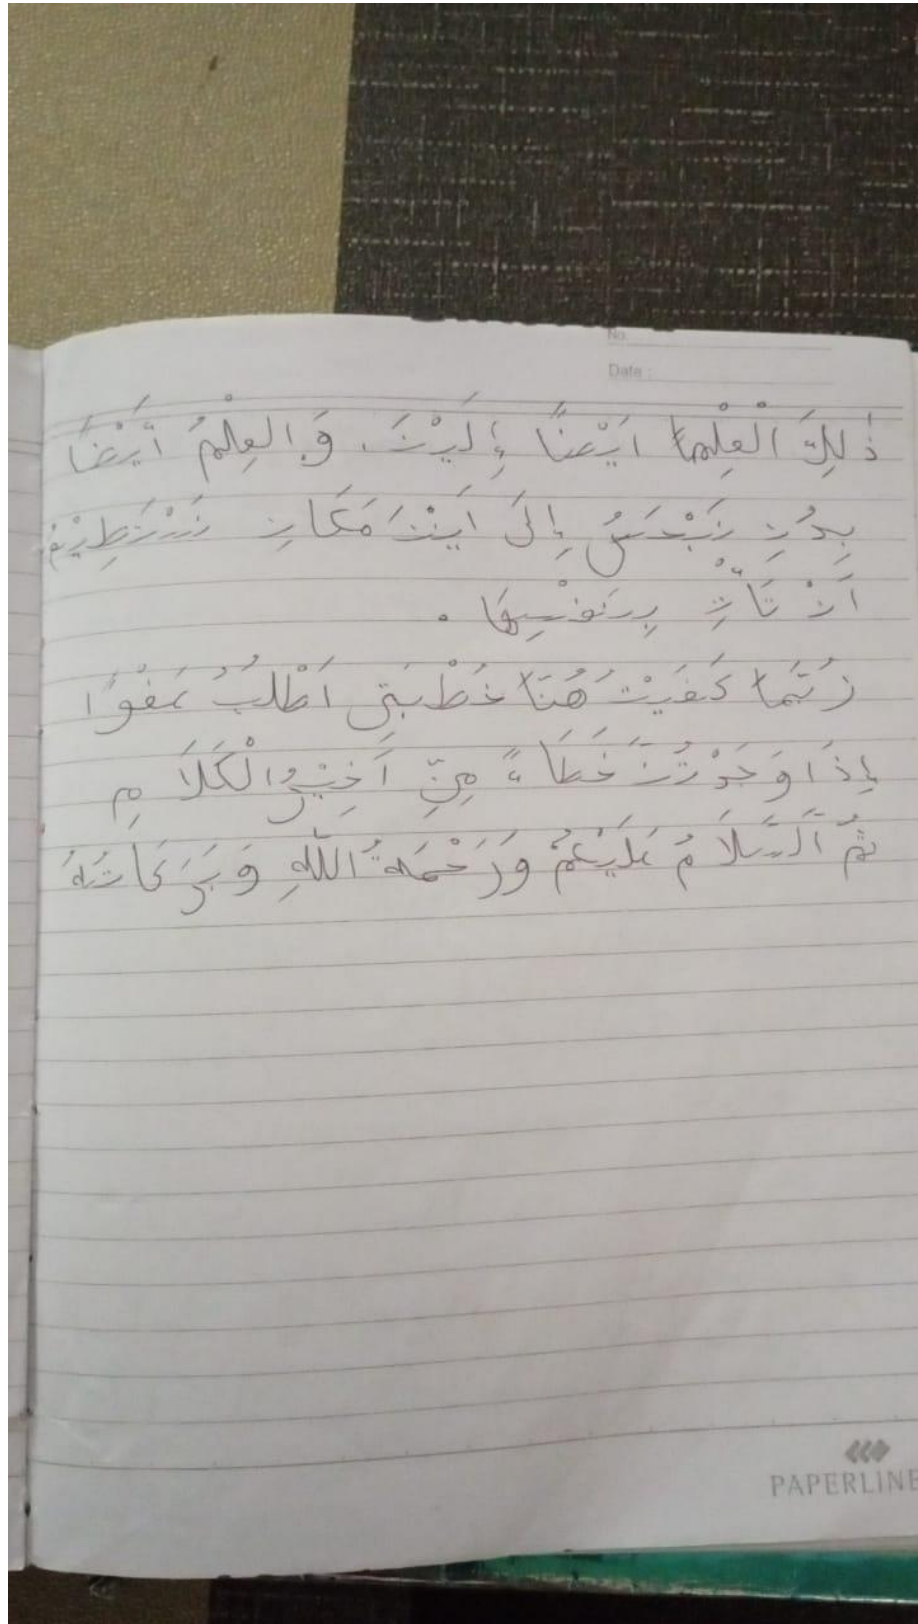 No.
Date :
ذٰلِكَ الْعِلْمِ اَيْضًا إِلَيْنَ. وَالعِلْمُ اَيْضًا
بِدُنِ إِلَى اَيْنَ مَكَانِ
اَنْ تَأْتِ بِنَفْسِهَا .
رُبَّمَا كَفَيْتُ هُنَا خُطْبَتِى اَطْلُبُ عَفْوًا
إِذَا وَجَدْتُنَ خَطَاءً مِنِّ اَخِيْرُ الْكَلَامِ
ثُمَّ اَلسَّلَامُ عَلَيْكُمْ وَرَحْمَةُ اللّٰهِ وَبَرَكَاتُهُ
PAPERLINE